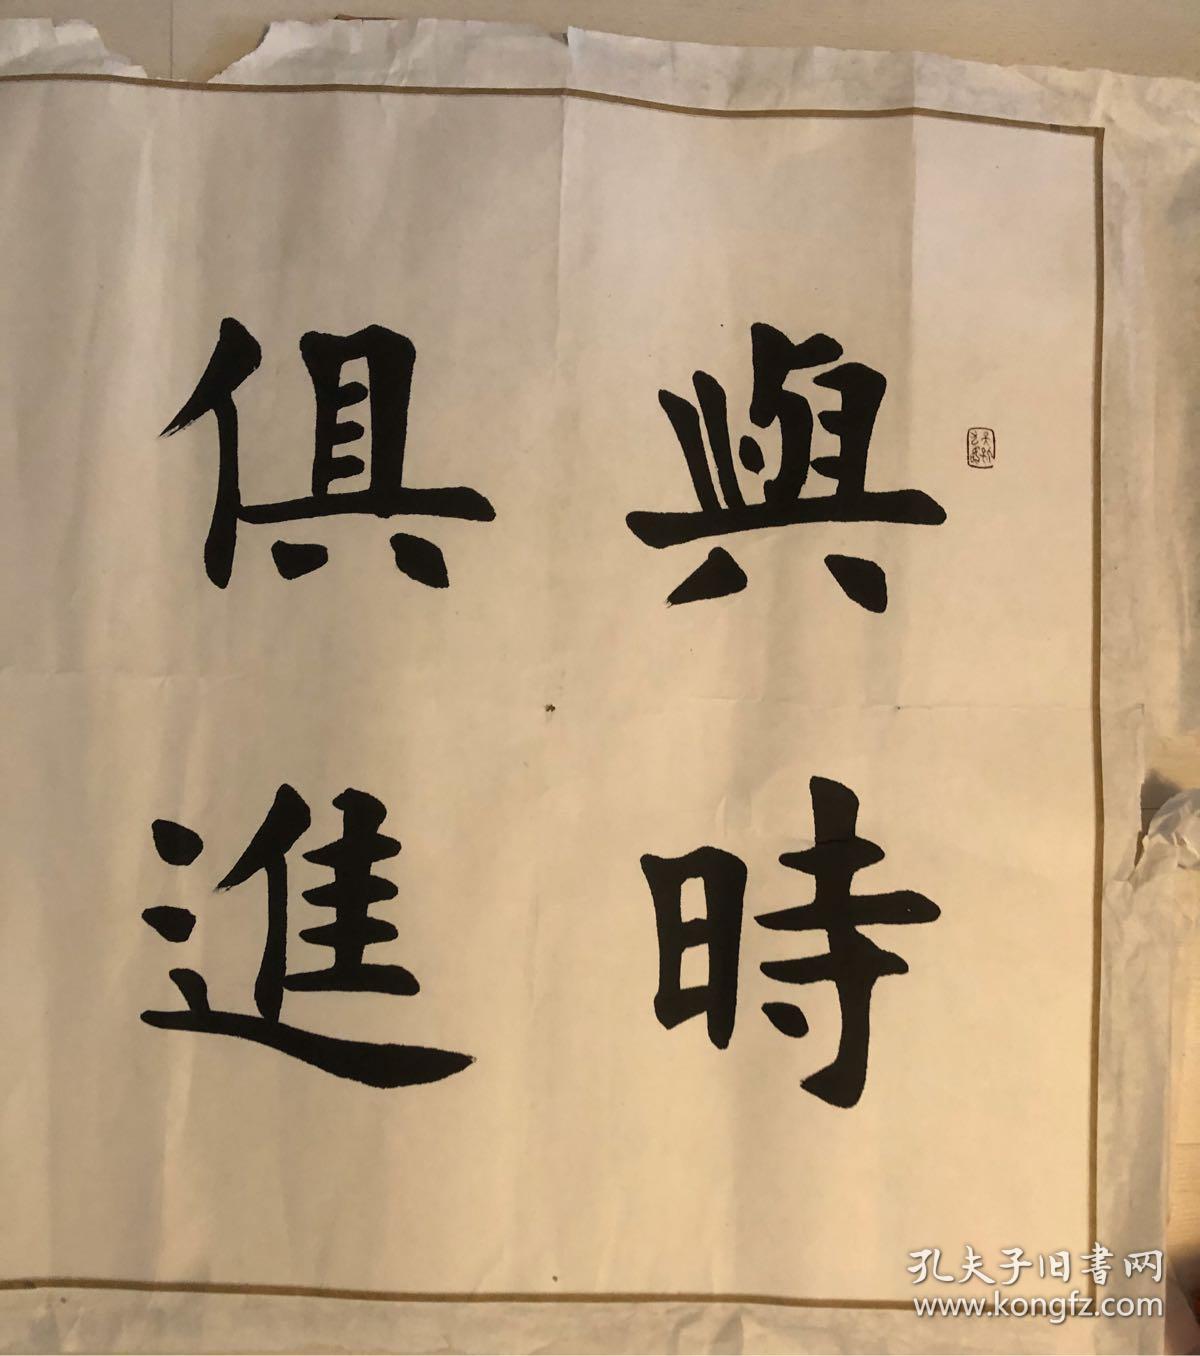 與時
俱進
孔夫子旧書网
www.kongfz.com